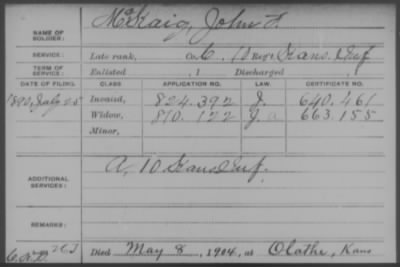 NAME OF SOLDIER: McKaig, John F.
SERVICE: Late rank, Co. C, 10 Reg't Kans. Inf
TERM OF SERVICE: Enlisted , 1 Discharged , 1
DATE OF FILING. CLASS. APPLICATION NO. LAW. CERTIFICATE NO.
1890, July 25 Invalid, 824.392 J. 640.461
Widow, 810.122 J. a 663.155
Minor,
ADDITIONAL SERVICES: A, 10 Kans Inf.
REMARKS:
Died May 8, 1904, at Olathe, Kans